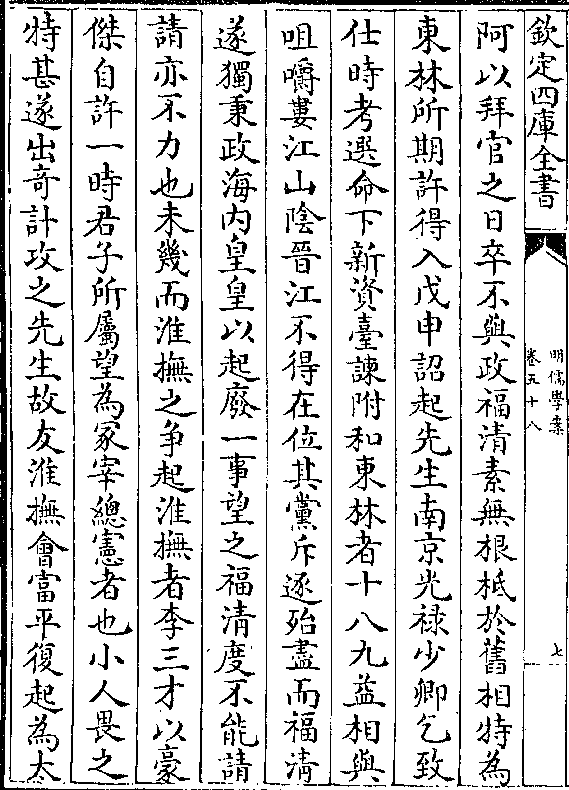 欽定四庫全書
明儒學案
卷五十八
七
阿以拜官之日卒不與政福清素無根柢於舊相特為
東林所期許得入戊申詔起先生南京光禄少卿乞致
仕時考選命下新資臺諫附和東林者十八九益相與
咀嚼婁江山陰晉江不得在位其黨斥逐殆盡而福清
遂獨秉政海内皇皇以起廢一事望之福清度不能請
請亦不力也未幾而淮撫之争起淮撫者李三才以豪
傑自許一時君子所屬望為冡宰總憲者也小人畏之
特甚遂出竒計攻之先生故友淮撫會富平復起為太